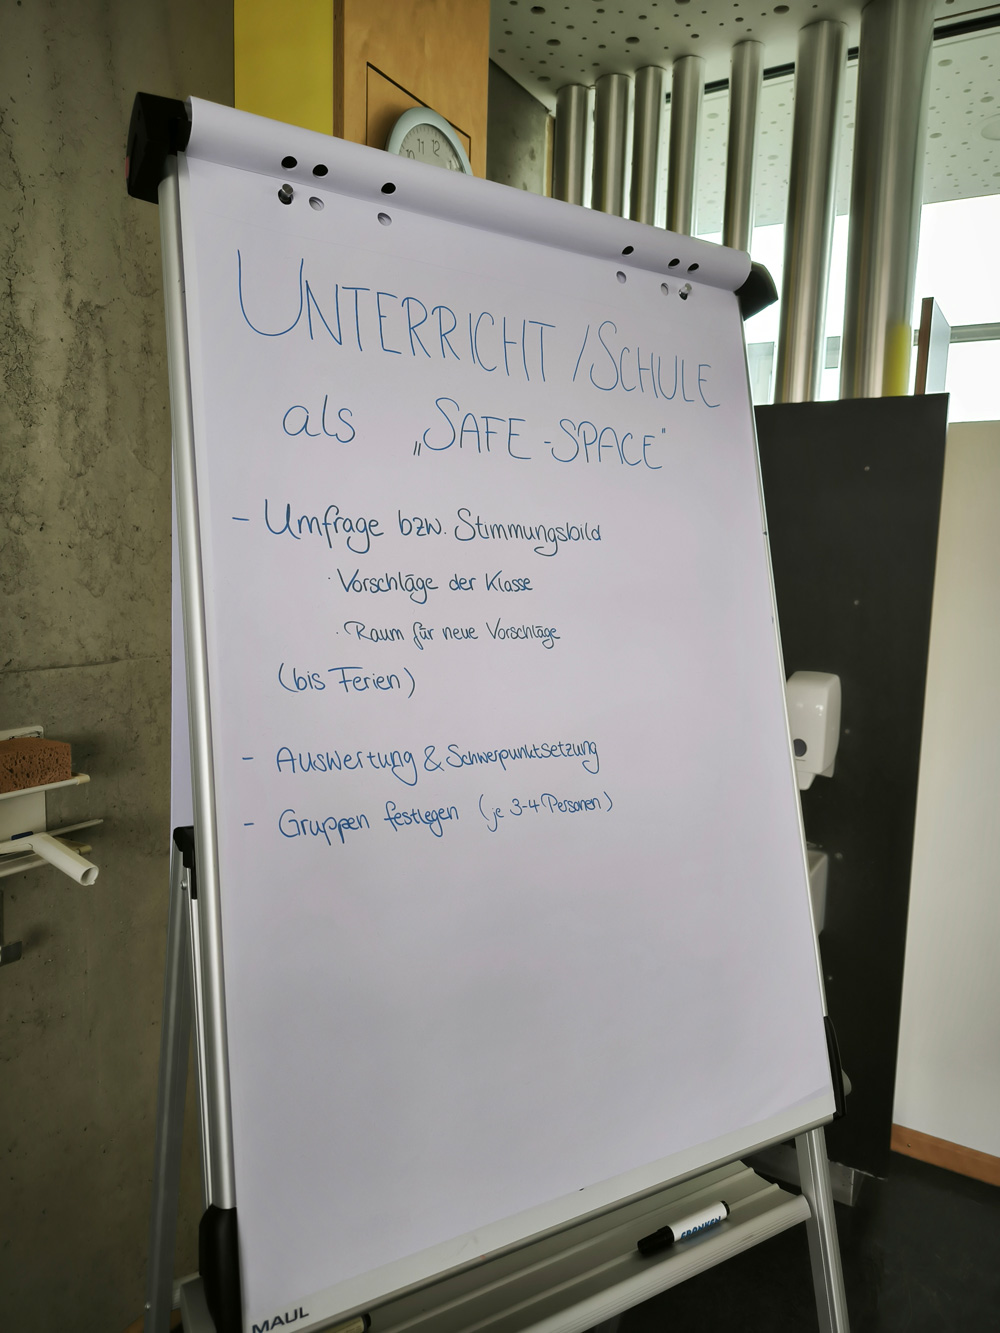 11 12
10
UNTERRICHT / SCHULE
als „SAFE-SPACE"
- Umfrage bzw. Stimmungsbild
· Vorschläge der Klasse
· Raum für neue Vorschläge
(bis Ferien)
- Auswertung & Schwerpunktsetzung
- Gruppen festlegen (je 3-4 Personen)
FRANKEN
MAUL